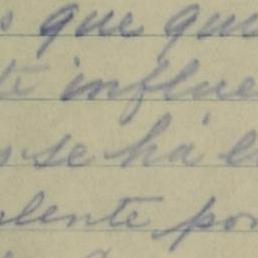 s que que
te influe
se há
lente por